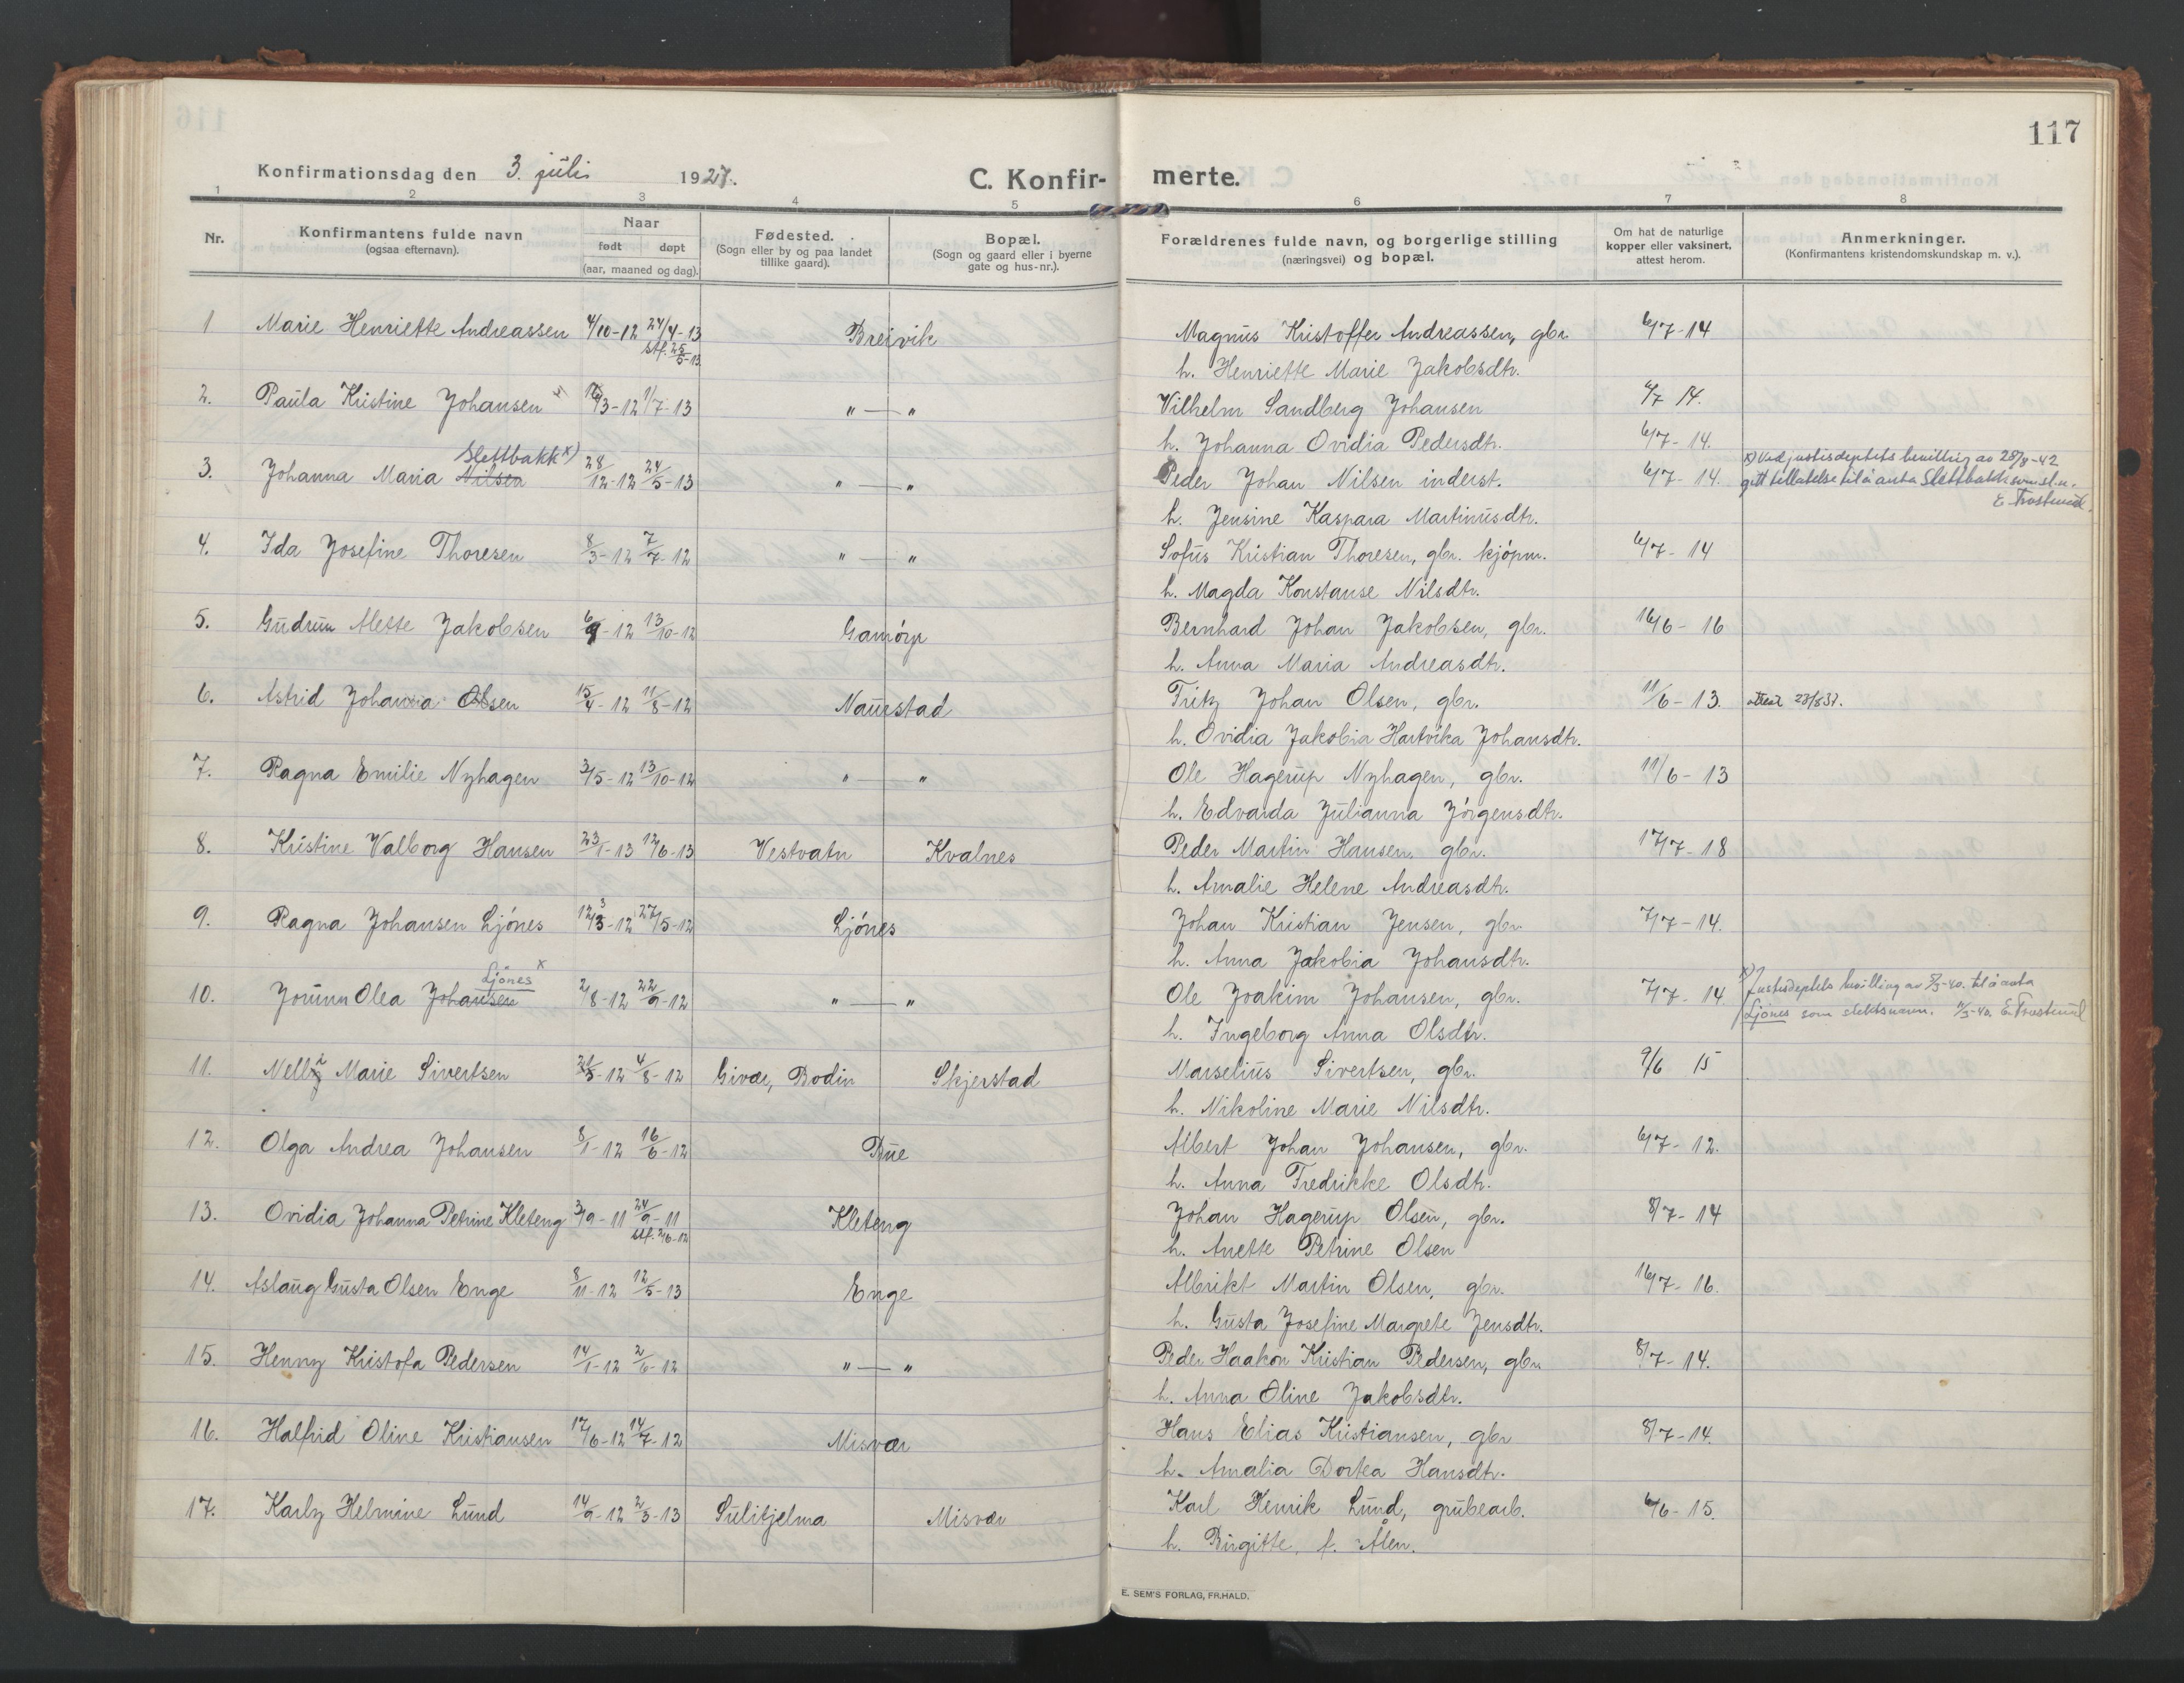 117
Konfirmationsdag den 3. juli 1927.
C. Konfirmerte.
1 2 3 4 5 6 7 8
Nr.
Konfirmantens fulde navn
(ogsaa efternavn).
Naar
født døpt
(aar, maaned og dag).
Fødested.
(Sogn eller by og paa landet
tillike gaard).
Bopæl.
(Sogn og gaard eller i byerne
gate og hus-nr.).
Forældrenes fulde navn, og borgerlige stilling
(næringsvei) og bopæl.
Om hat de naturlige
kopper eller vaksinert,
attest herom.
Anmerkninger.
(Konfirmantens kristendomskundskap m. v.).
1 Marie Henriette Andreassen 4/10-12 24/4-13 Breivik Magnus Kristoffer Andreassen, gbr. 6/7-14
stf. 25/5-13. h. Henriette Marie Jakobsdtr.
2. Paula Kristine Johansen 1/7-13 " — " Vilhelm Sandberg Johansen 6/7 14.
h. Johanna Ovidia Pedersdtr. 6/7-14.
Slettbakk x)
3. Johanna Maria Nilsen 28/12-12 24/5-13 " — " Peder Johan Nilsen inderst. 6/7-14. x) Ved justisdeptets bevilling av 28/8-42
gitt tillatelse til å anta Slettbakk som sl.n.
E. Trostmul.
h. Jensine Kaspara Martinusdtr.
4. Ida Josefine Thoresen 8/3-12 7/7-12 " — " Sofus Kristian Thoresen, gbr. kjøpm. 6/7-14
h. Magda Konstanse Nilsdtr.
5. Gudrun Alette Jakobsen 6/9-12 13/10-12 Gamörp Bernhard Johan Jakobsen, gbr. 16/6-16
h. Anna Maria Andreasdtr.
6. Astrid Johanna Olsen 15/4-12 11/8-12 Naurstad Fritz Johan Olsen, gbr. 11/6-13. attest 23/8 37.
h. Ovidia Jakobia Hartvika Johansdtr.
7. Ragna Emilie Nyhagen 3/5-12 13/10-12 " — " Ole Hagerup Nyhagen, gbr. 11/6-13
h. Edvarda Julianna Jörgensdtr.
8. Kristine Valborg Hansen 23/1-13 12/6-13 Vestvatn Kvalnes Peder Martin Hansen, gbr. 17/7-18
h. Amalie Helene Andreasdtr.
9. Ragna Johansen Ljönes 12/3-12 27/5-12 Ljönes Johan Kristian Jensen, gbr. 7/7-14.
h. Anna Jakobia Johansdtr.
Ljönes x
10. Jorunn Olea Johansen 2/8-12 22/9-12 " — " Ole Joakim Johansen, gbr. 7/7-14. x) Justisdeptets bevilling av 8/3-40. til å anta
Ljönes som slektsnavn. E. Trostmul
h. Ingeborg Anna Olsdtr.
11. Nelly Marie Sivertsen 4/8-12 Givær, Bodin Skjerstad Marselius Sivertsen, gbr. 9/6 15
h. Nikoline Marie Nilsdtr.
12. Olga Andrea Johansen 8/1-12 16/6-12 Bue Albert Johan Johansen, gbr. 6/7-12.
h. Anna Fredrikke Olsdtr.
13. Ovidia Johanna Petrine Kleteng 3/9-11 24/9-11 Kleteng Johan Hagerup Olsen, gbr. 8/7-14
stf. 2/6-12 h. Anette Petrine Olsen
14. Aslaug Gusta Olsen Enge 8/11-12 12/5-13 Enge Albrikt Martin Olsen, gbr. 16/7-16.
h. Gusta Josefine Margrete Jensdtr.
15. Henny Kristofa Pedersen 14/1-12 2/6-12 " — " Peder Haakon Kristian Pedersen, gbr. 8/7-14.
h. Anna Oline Jakobsdtr.
16. Halfrid Oline Kristiansen 17/6-12 14/7-12 Misvær Hans Elias Kristiansen, gbr 8/7-14.
h. Amalia Dortea Hansdtr.
17. Karly Helmine Lund 14/9-12 2/3-13 Sulitjelma Misvær Karl Henrik Lund, grubearb. 6/6-15.
h. Birgitte, f. Ålen.
E. SEM'S FORLAG, FR.HALD.